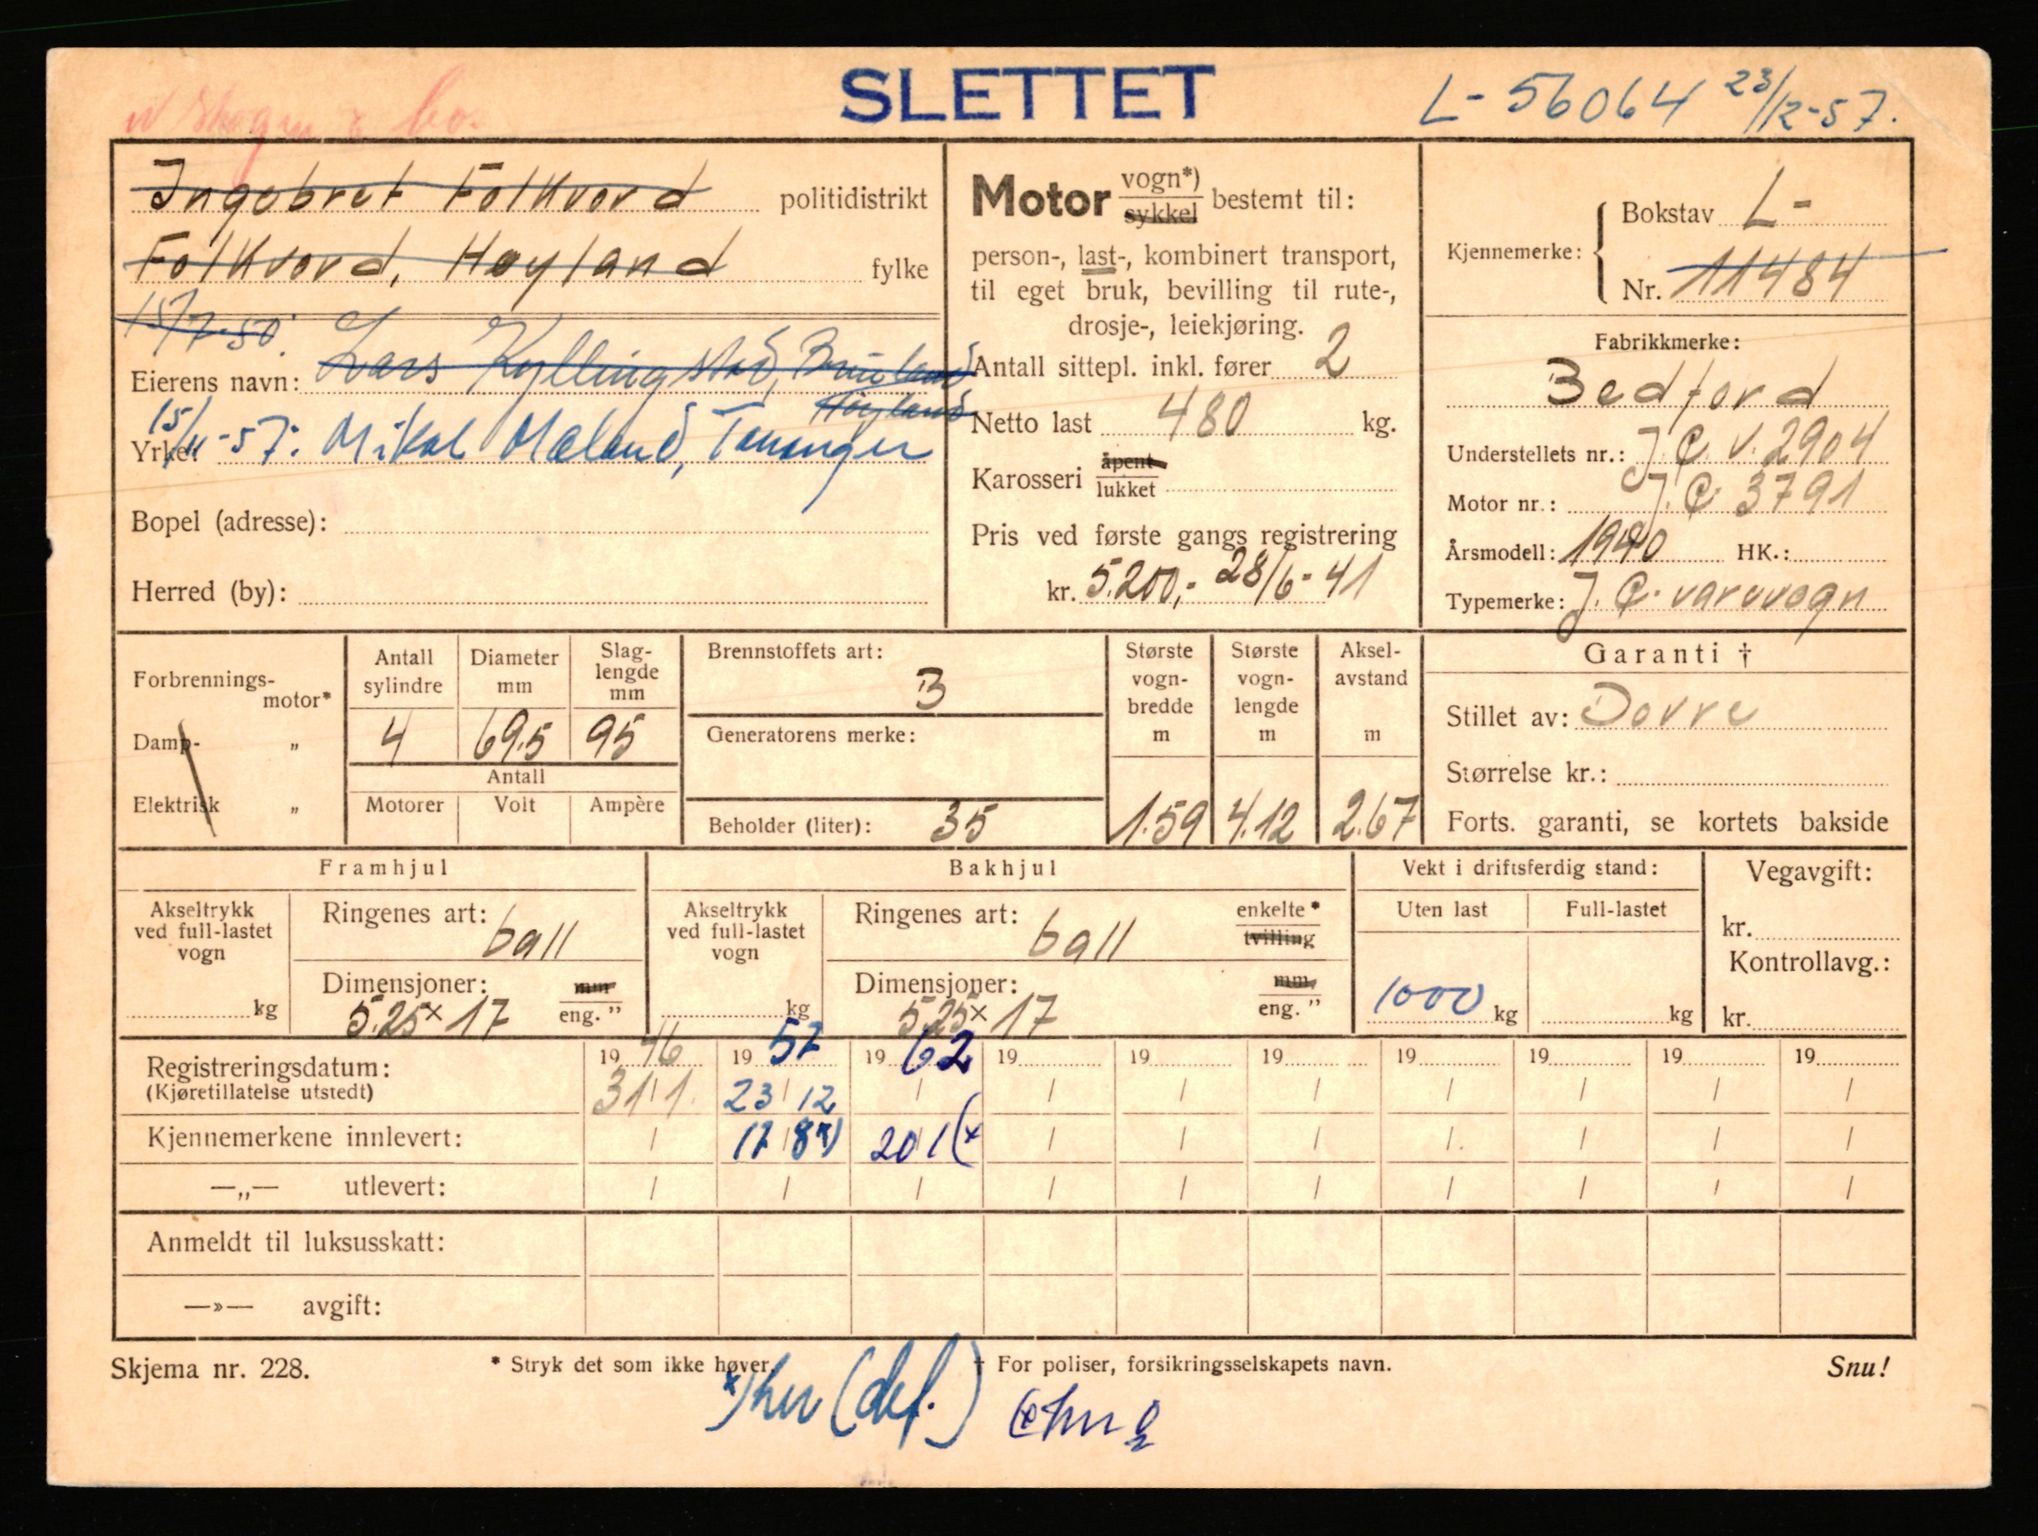 SLETTET
L- 56064 23/12-57.
Ingebret Folkvord politidistrikt
Folkvord, Høyland fylke
15/7-50.
Eierens navn: Lars Kyllingstad, Brueland
Høyland
15/11-57: Mikal Mæland, Tananger
Yrke:
Bopel (adresse):
Herred (by):
Motor vogn*) sykkel bestemt til:
person-, last-, kombinert transport,
til eget bruk, bevilling til rute-,
drosje-, leiekjøring.
Antall sittepl. inkl. fører 2
Netto last 480 kg.
Karosseri åpent lukket
Pris ved første gangs registrering
kr. 5.200,- 28/6-41
Kjennemerke: Bokstav L-
Nr. 11484
Fabrikkmerke:
Bedford
Understellets nr.: J.C.V. 2904
Motor nr.: J.C 3791
Årsmodell: 1940 HK.:
Typemerke: J.C. varevogn
Forbrennings-motor*
Damp- „
Elektrisk „
Antall sylindre Diameter mm Slag-lengde mm
4 69.5 95
Antall
Motorer Volt Ampère
Brennstoffets art:
B
Generatorens merke:
Beholder (liter): 35
Største vogn-bredde m
1.59
Største vogn-lengde m
4.12
Aksel-avstand m
2.67
Garanti †
Stillet av: Dovre
Størrelse kr.:
Forts. garanti, se kortets bakside
Framhjul
Akseltrykk ved full-lastet vogn
kg
Ringenes art: ball
Dimensjoner: mm
5.25x17 eng. "
Bakhjul
Akseltrykk ved full-lastet vogn
kg
Ringenes art: enkelte*
ball tvilling
Dimensjoner: mm,
5.25x17 eng. "
Vekt i driftsferdig stand:
Uten last Full-lastet
1000 kg kg
Vegavgift:
kr.
Kontrollavg.:
kr.
Registreringsdatum: 19 46 19 57 19 62 19 19 19 19 19 19 19
(Kjøretillatelse utstedt) 31/1. 23/12 / / / / / / / /
Kjennemerkene innlevert: / 17/8 x) 20/1 (x / / / / / / /
—„— utlevert: / / / / / / / / / /
Anmeldt til luksusskatt:
—»— avgift:
Skjema nr. 228.
* Stryk det som ikke høver.
† For poliser, forsikringsselskapets navn.
Snu!
x) her (def.)